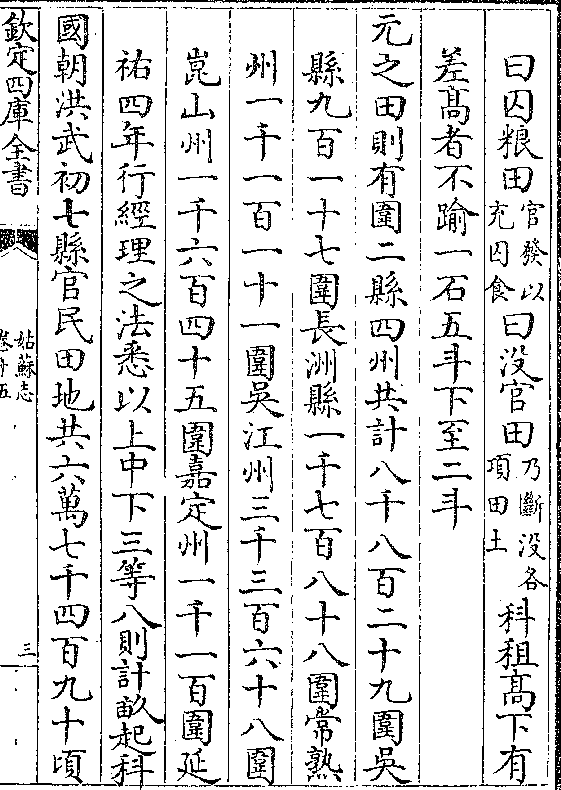 曰囚粮田官發以充囚食曰没官田乃斷没各項田土科租髙下有
差髙者不踰一石五斗下至二斗
元之田則有圍二縣四州共計八千八百二十九圍吳
縣九百一十七圍長洲縣一千七百八十八圍常熟
州一千一百一十一圍吳江州三千三百六十八圍
崑山州一千六百四十五圍嘉定州一千一百圍延
祐四年行經理之法悉以上中下三等八則計畝起科
國朝洪武初七縣官民田地共六萬七千四百九十頃
欽定四庫全書
姑蘇志
卷十五
三